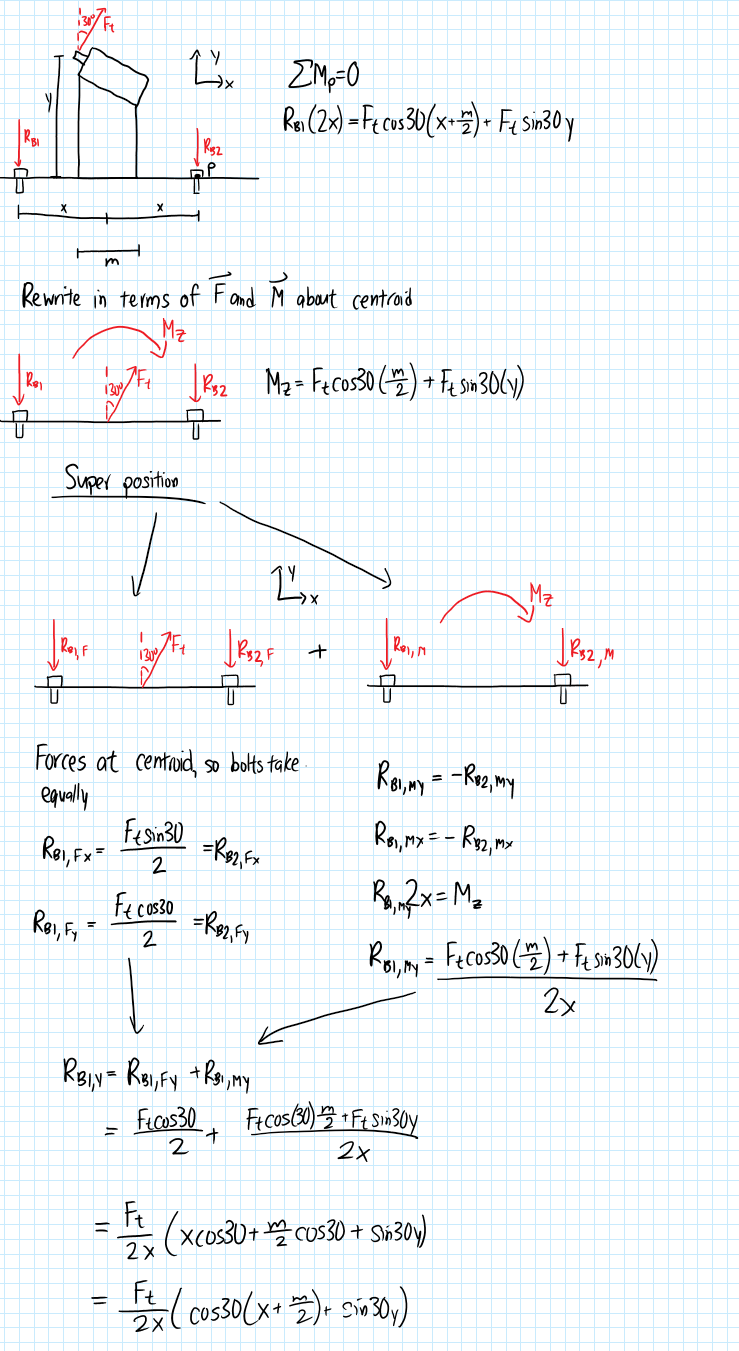 30° F_t
y
↑y
→x
R_B1
R_B2
P
x x
m
ΣM_p=0
R_B1(2x)=F_t cos30(x+m/2)+ F_t sin30y
Rewrite in terms of F⃗ and M⃗ about centroid
M_z
R_B1 30° F_t R_B2
M_z = F_t cos30(m/2)+F_t sin30(y)
Super position
y
x
M_z
R_B1,F 30° F_t R_B2,F + R_B1,M R_B2,M
Forces at centroid, so bolts take
equally
R_B1,Fx = F_t sin30/2 =R_B2,Fx
R_B1,Fy = F_t cos30/2 =R_B2,Fy
R_B1,My = -R_B2,My
R_B1,Mx = - R_B2,Mx
R_B1,My 2x = M_z
R_B1,My = (F_t cos30(m/2)+F_t sin30(y))/2x
R_B1,y = R_B1,Fy +R_B1,My
= F_t cos30/2 + (F_t cos(30)m/2+F_t sin30y)/2x
= F_t/2x (xcos30+m/2 cos30 + sin30y)
= F_t/2x (cos30(x+m/2)+ sin30y)